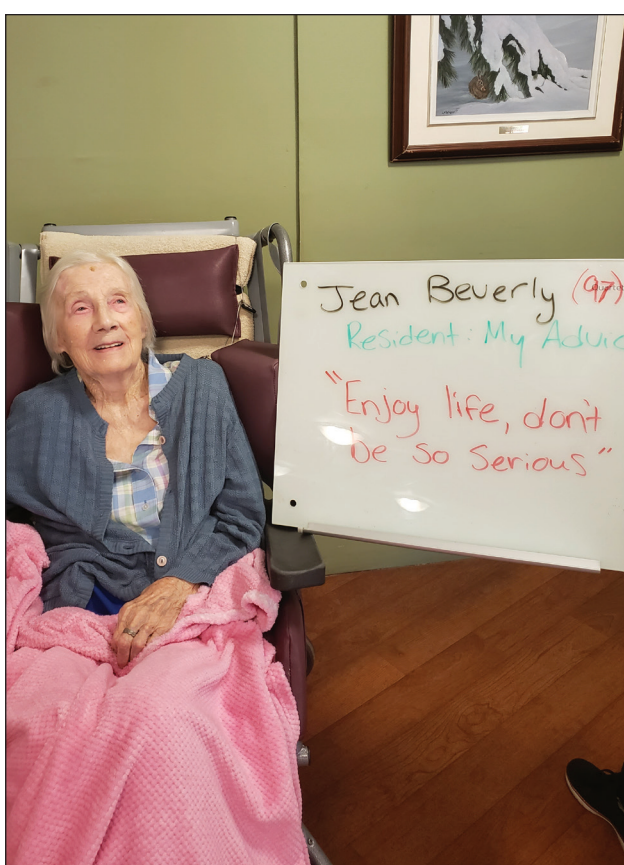 Jean Beverly (97)
Resident: My Advic
"Enjoy life, don't
be so serious"